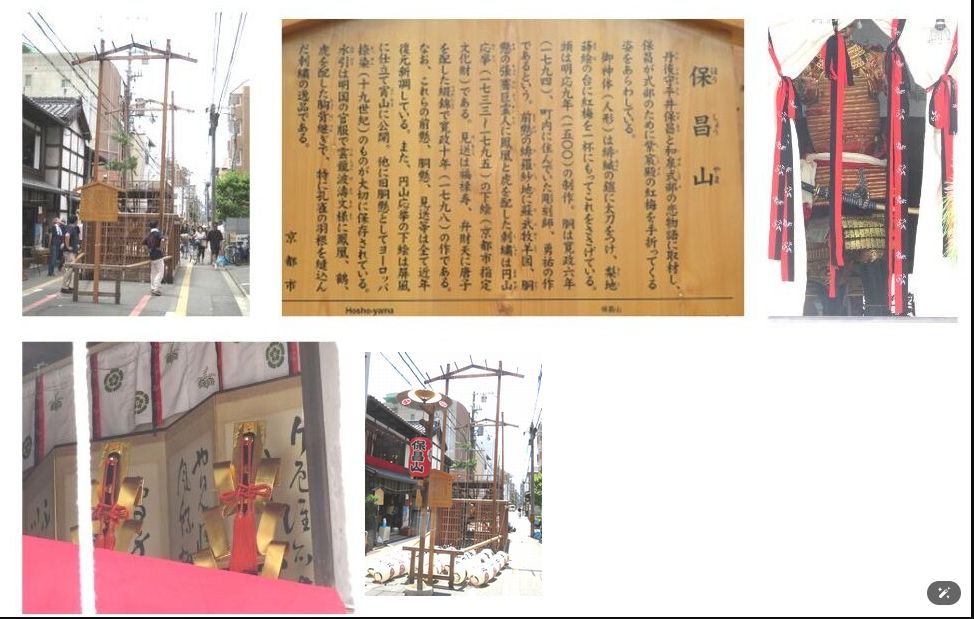 保昌山
ほう しょう やま
丹後守平井保昌と和泉式部の恋物語に取材し、
保昌が式部のために紫宸殿の紅梅を手折ってくる
姿をあらわしている。
御神体(人形)は緋縅の鎧に太刀をつけ、梨地
蒔絵の台に紅梅を一杯にもってこれをささげている。
頭は明応九年(一五〇〇)の制作、胴は寛政六年
(一七九四)、町内に住んでいた彫刻師、勇祐の作
であるという。前懸の緋羅紗地に蘇武牧羊図、胴
懸の張騫巨霊人に鳳凰と虎を配した刺繍は円山
応挙(一七三三-一七九五)の下絵(京都市指定
文化財)である。見送は福禄寿、弁財天に唐子
を配した綴錦で寛政十年(一七九八)の作である。
なお、これらの前懸、胴懸、見送等は全て近年
復元新調している。また、円山応挙の下絵は屏風
に仕立て宵山に公開、他に旧胴懸としてヨーロッパ
捺染(十九世紀)のものが大切に保存されている。
水引は明国の官服で雲龍波濤文様に鳳凰、鶴、
虎を配した胸背継ぎで、特に孔雀の羽根を縫込ん
だ刺繍の逸品である。
京都市
Hosho-yama
保昌山
保昌山